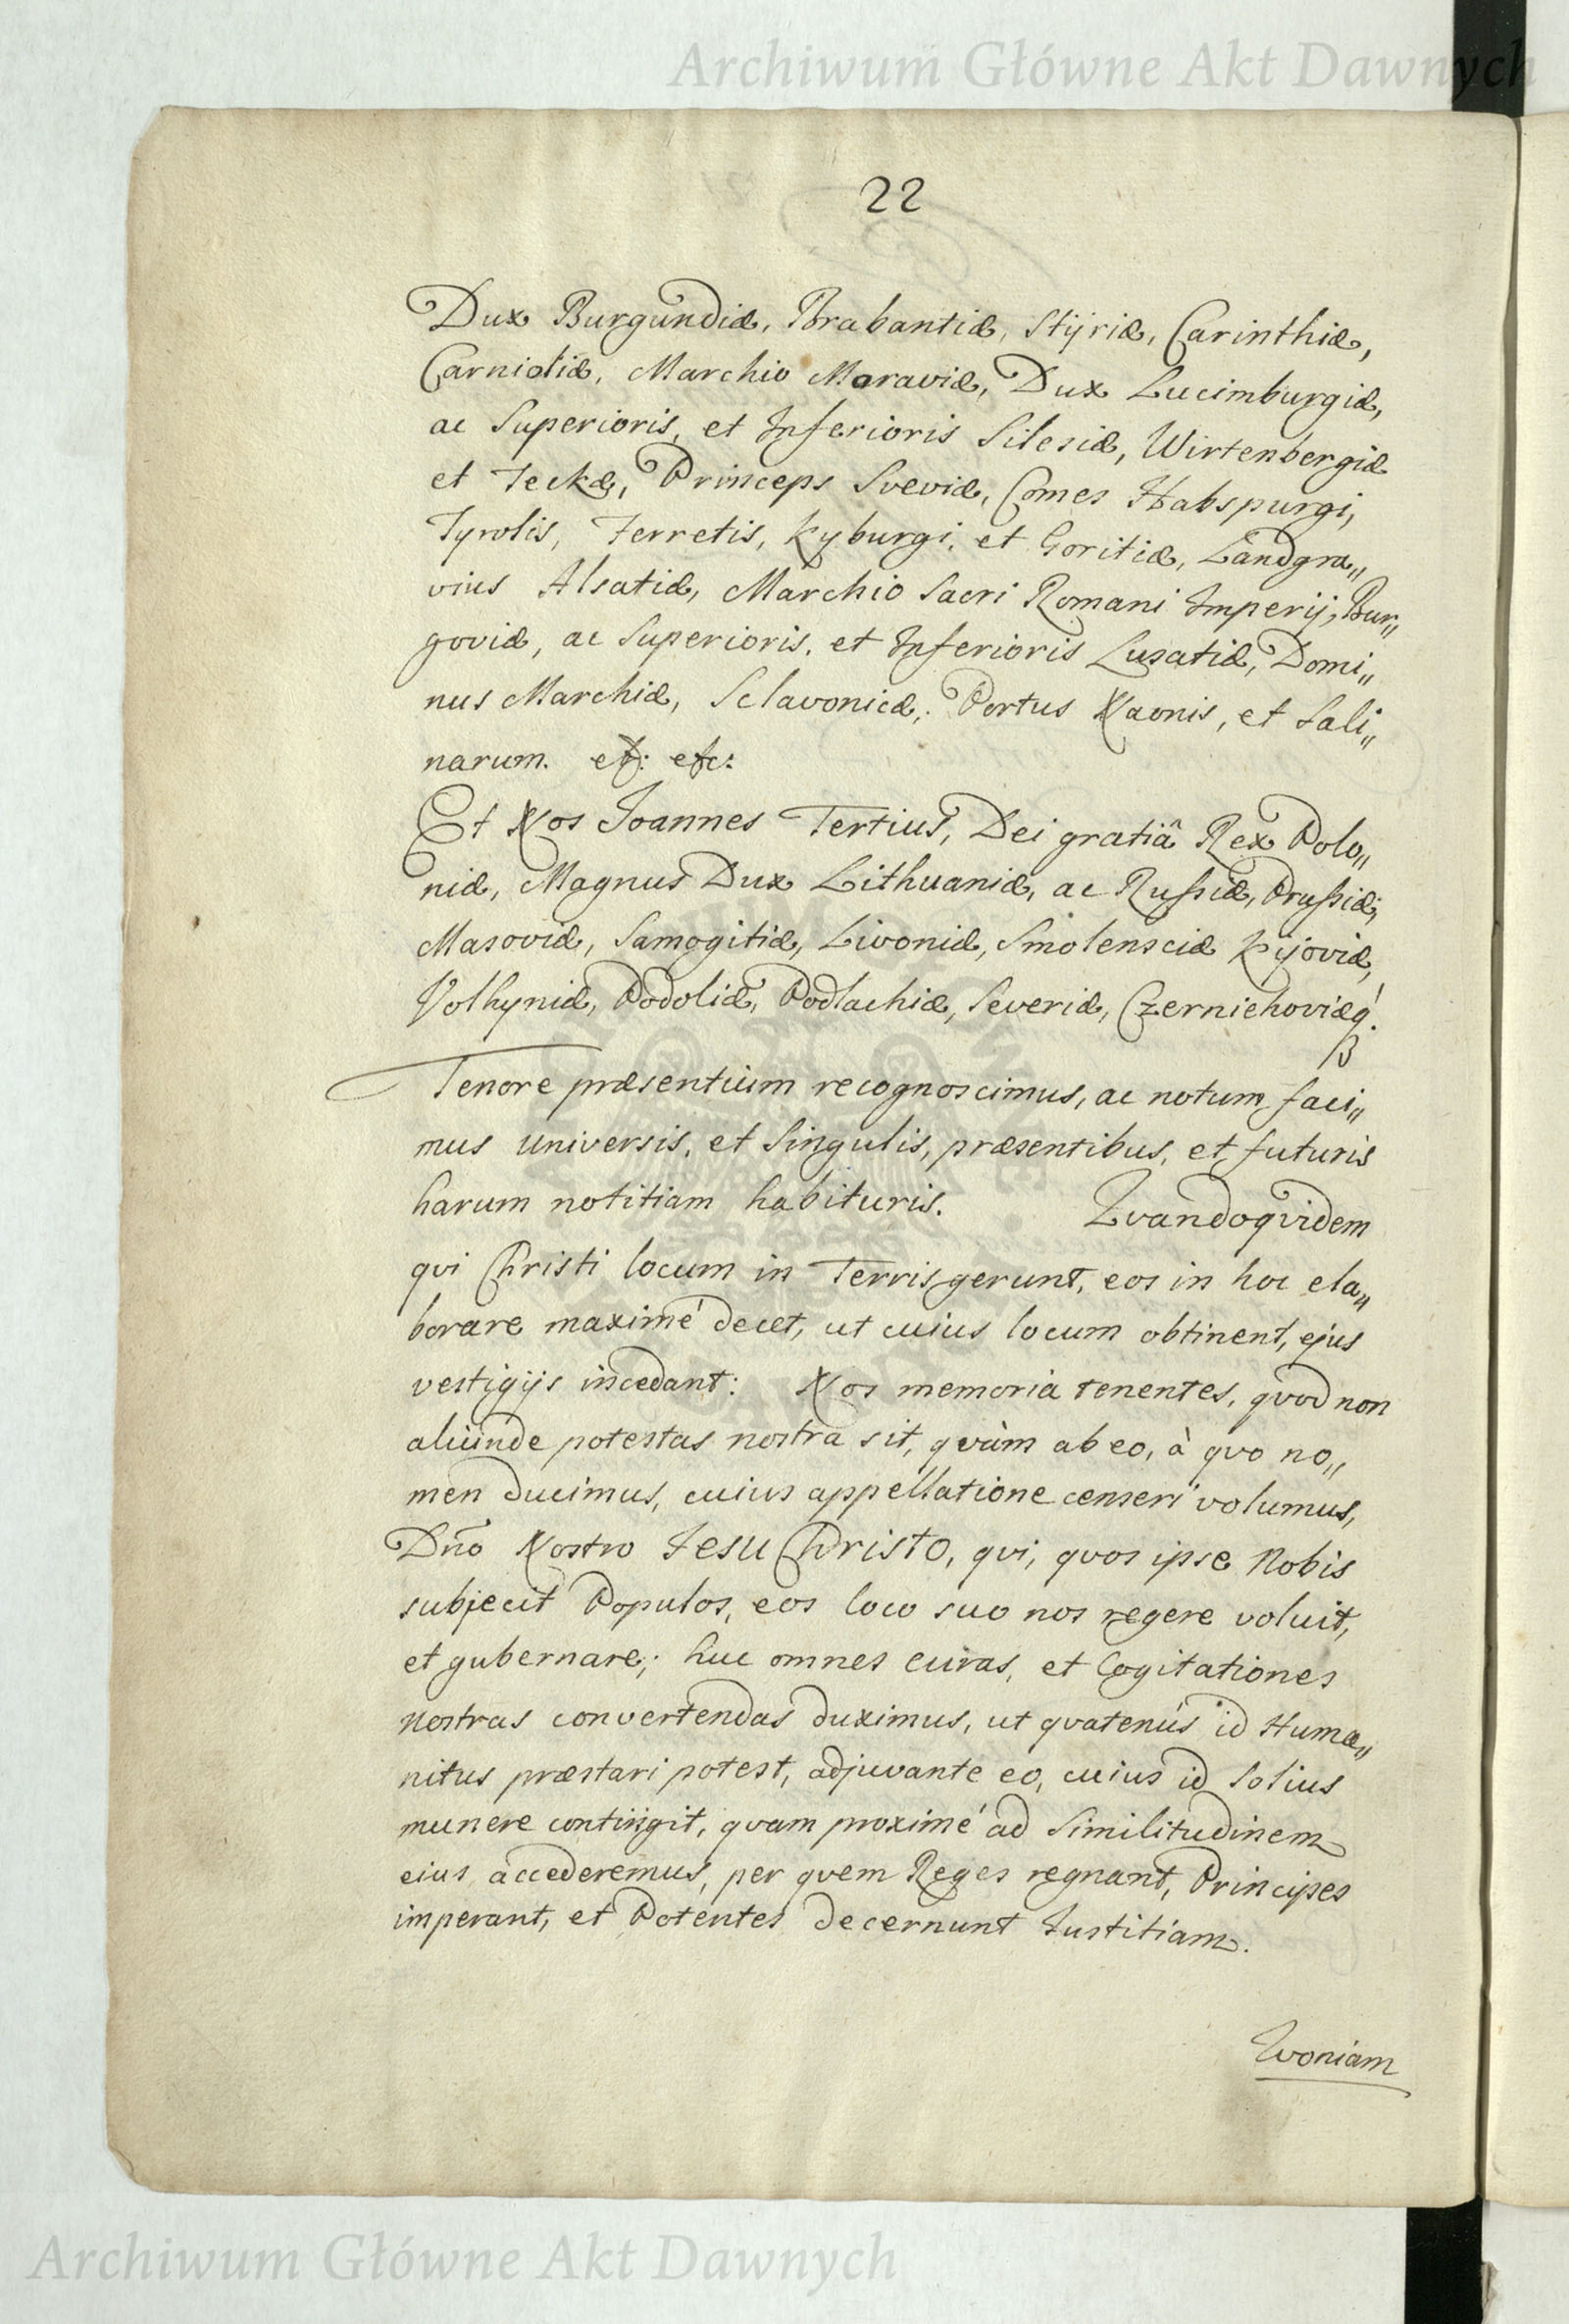 Archiwum Główne Akt Dawnych
22
Dux Burgundiæ, Brabantiæ, Stÿriæ, Carinthiæ,
Carnioliæ, Marchio Moraviæ, Dux Lucimburgiæ,
ac Superioris, et Inferioris Silesiæ, Wirtenbergiæ
et Teckæ, Princeps Sveviæ, Comes Habspurgi,
Tyrolis, Ferretis, Kyburgi, et Goritiæ, Landgra„
vius Alsatiæ, Marchio Sacri Romani Imperij, Bur„
goviæ, ac Superioris, et Inferioris Lusatiæ, Domi„
nus Marchiæ, Sclavonicæ, Portus Naonis, et Sali„
narum. etc: etc:
Et Nos Joannes Tertius, Dei gratiâ Rex Polo„
niæ, Magnus Dux Lithuaniæ, ac Rußiæ, Prußiæ,
Masoviæ, Samogitiæ, Livoniæ, Smolensciæ Kijoviæ,
Volhyniæ, Podoliæ, Podlachiæ, Severiæ, Czerniehoviæq́.
Tenore præsentium recognoscimus, ac notum faci„
mus universis, et Singulis, præsentibus, et futuris
harum notitiam habituris. Quandoqvidem
qvi Christi locum in Terris gerunt, eos in hoc ela„
borare maximé decet, ut cuius locum obtinent, ejus
vestigijs incedant: Nos memoriâ tenentes, qvod non
aliunde potestas nostra sit, qvàm ab eo, à qvo no„
men ducimus, cuius appellatione censeri volumus,
Dño Nostro Jesu Christo, qvi, qvos ipse Nobis
subjecit Populos, eos loco suo nos regere voluit,
et gubernare; huc omnes curas, et Cogitationes
nostras convertendas duximus, ut qvatenùs id Huma„
nitus præstari potest, adjuvante eo, cuius id Solius
munere contingit, qvam proximé ad Similitudinem
eius accederemus, per qvem Reges regnant, Principes
imperant, et Potentes decernunt Justitiam.
Qvoniam
Archiwum Główne Akt Dawnych